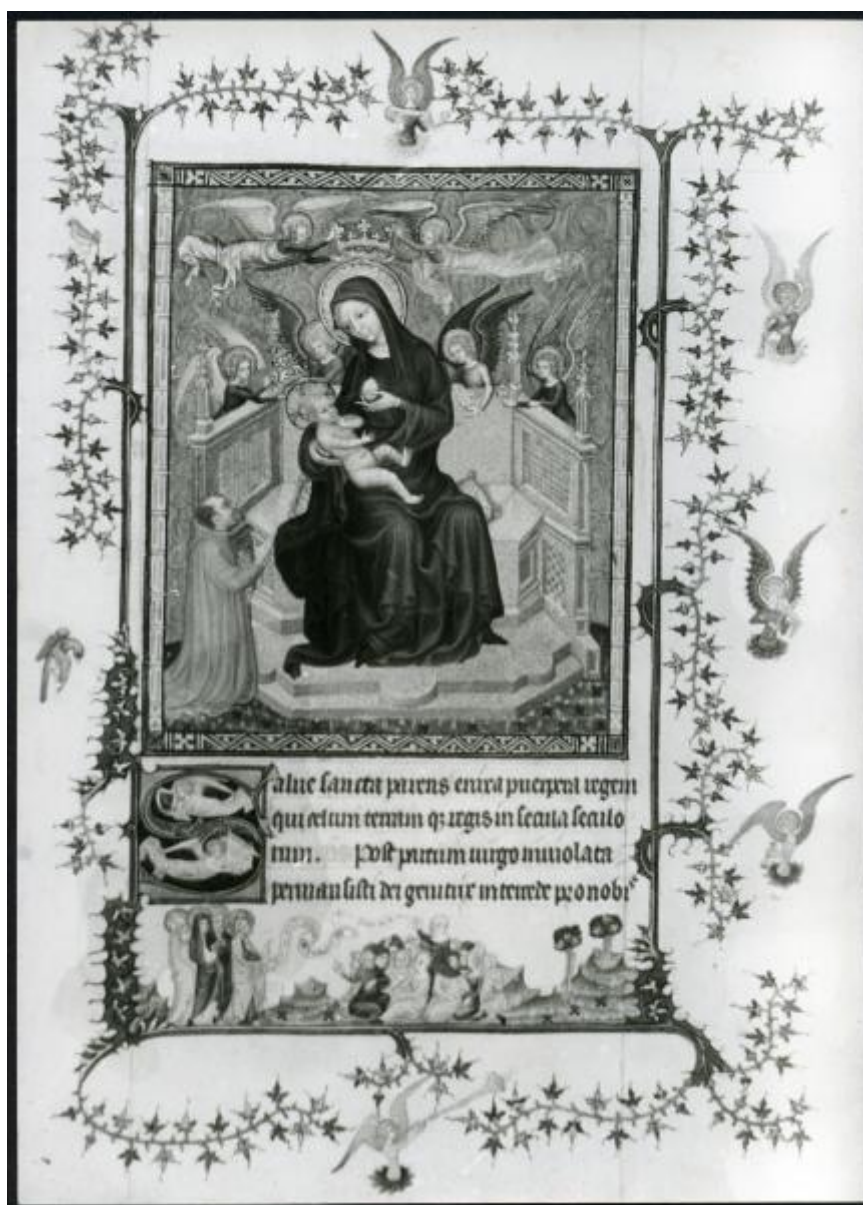 Salue sancta parens enixa puerpera regem
qui celum terram q; regis in secula seculo
rum. Post partum uirgo inuiolata
permansisti dei genitrix intercede pro nobis